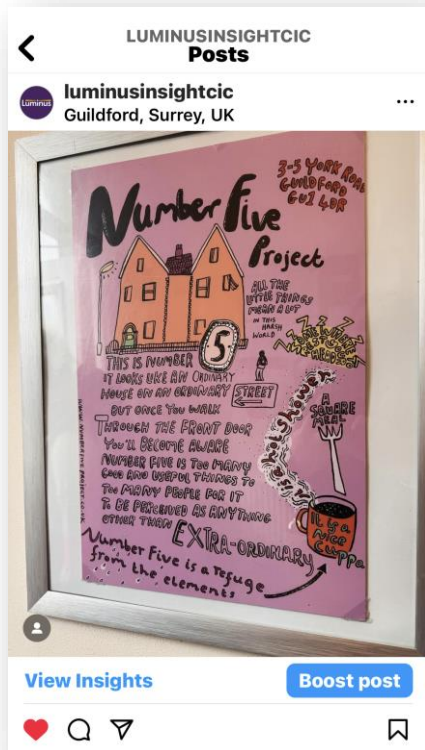 LUMINUSINSIGHTCIC
Posts
Luminus
luminusinsightcic
Guildford, Surrey, UK
3-5 YORK ROAD
GUILDFORD
GU1 4DR
Number Five
Project
ALL THE
LITTLE THINGS
MEAN A LOT
IN THIS
HARSH
WORLD
5
THIS IS NUMBER
IT LOOKS LIKE AN ORDINARY
HOUSE ON AN ORDINARY
STREET
BUT ONCE YOU WALK
THROUGH THE FRONT DOOR
YOU'LL BECOME AWARE
NUMBER FIVE IS TOO MANY
GOOD AND USEFUL THINGS TO
TOO MANY PEOPLE FOR IT
TO BE PERCEIVED AS ANYTHING
OTHER THAN
EXTRA-ORDINARY
it is a hot shower
A
SQUARE
MEAL
It is a
nice
cuppa
Number Five is a refuge
from the elements
View Insights
Boost post